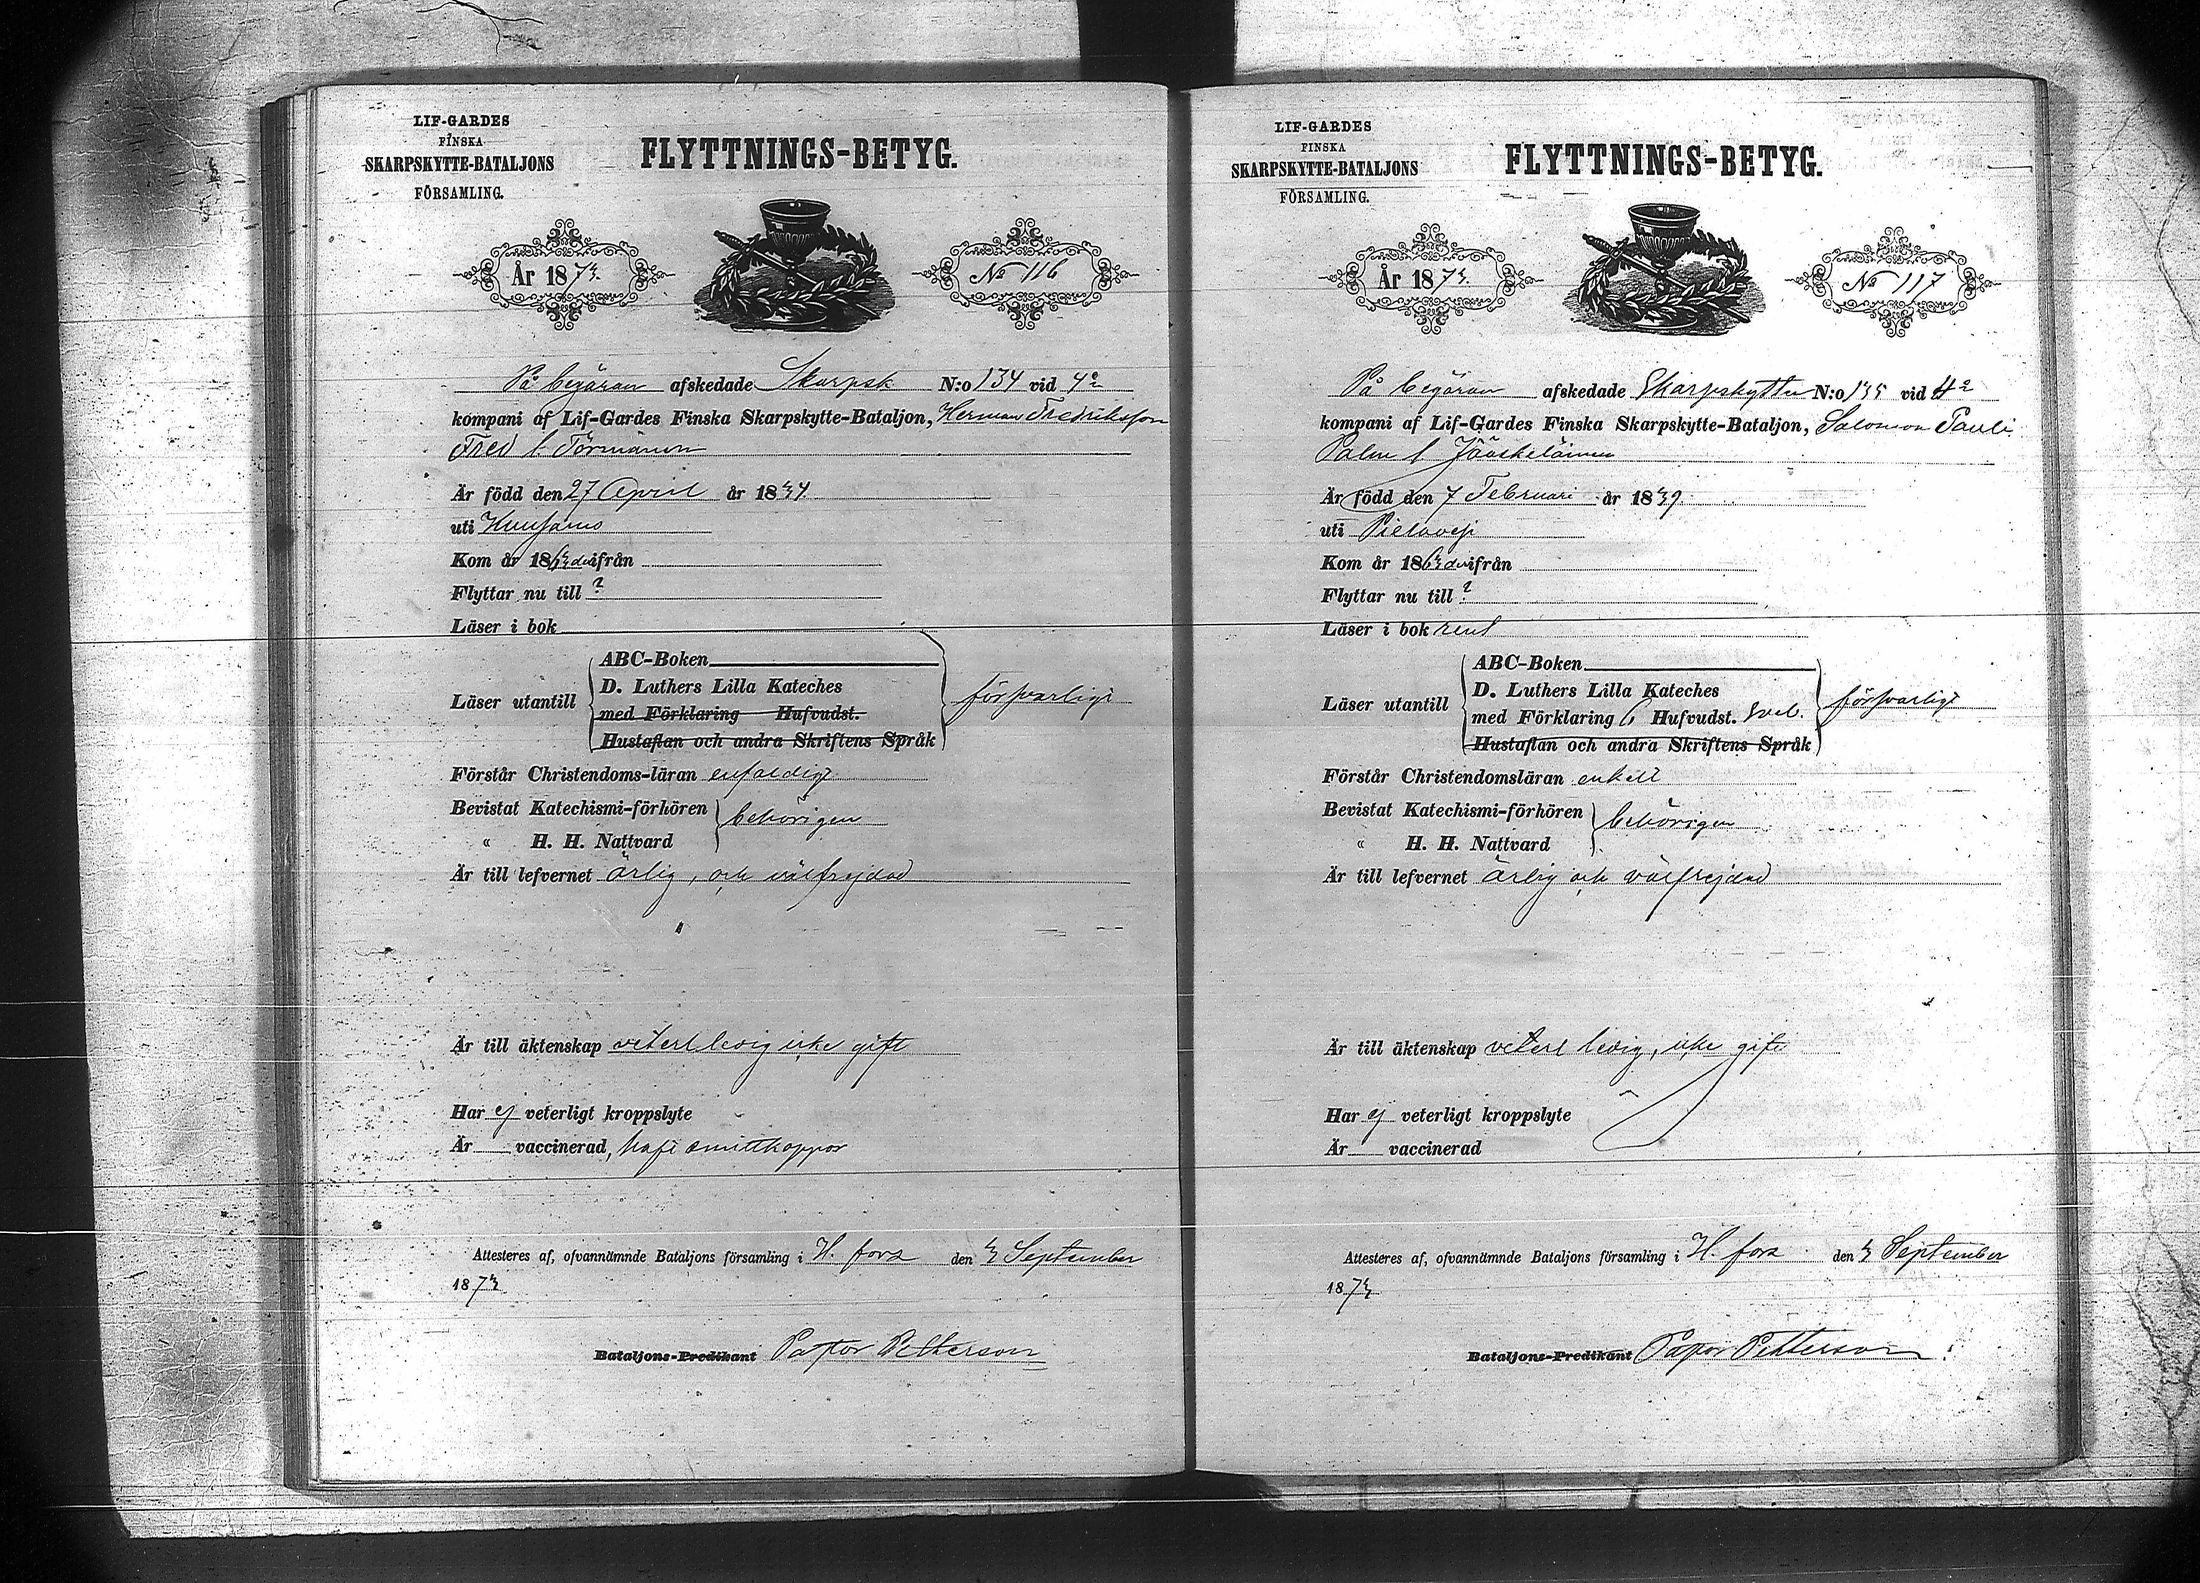 LIF-GARDES
FINSKA
SKARPSKYTTE-BATALJONS
FÖRSAMLING.
FLYTTNINGS-BETYG.
År 1873.
No 116
På begäran afskedade Skarpsk N:o 134 vid 4e
kompani af Lif-Gardes Finska Skarpskytte-Bataljon, Herman Fredriksson
Fred f. Törmänen
Är född den 27 April år 1844
uti Kuusamo
Kom år 1863 ifrån
Flyttar nu till ?
Läser i bok
Läser utantill
ABC-Boken
D. Luthers Lilla Kateches
med Förklaring Hufvudst.
Hustaflan och andra Skriftens Språk
försvarligt
Förstår Christendoms-läran enfaldigt
Bevistat Katechismi-förhören
" H. H. Nattvard
behörigen
Är till lefvernet ärlig, och välfrejdad
Är till äktenskap veterl. ledig icke gift
Har ej veterligt kroppslyte
Är vaccinerad, haft smittkoppor
Attesteres af, ofvannämnde Bataljons församling i H. fors den 3 September
1873
Bataljons-Predikant Pastor Petterson
LIF-GARDES
FINSKA
SKARPSKYTTE-BATALJONS
FÖRSAMLING.
FLYTTNINGS-BETYG.
År 1873.
No 117
På begäran afskedade Skarpskytten N:o 135 vid 4e
kompani af Lif-Gardes Finska Skarpskytte-Bataljon, Salomon Pauli
Palm f. Jääskeläinen
Är född den 7 Februari år 1839.
uti Pielavesi
Kom år 1863 ifrån
Flyttar nu till ?
Läser i bok rent
Läser utantill
ABC-Boken
D. Luthers Lilla Kateches
med Förklaring 6 Hufvudst. Sveb.
Hustaflan och andra Skriftens Språk
försvarligt
Förstår Christendomsläran enkelt
Bevistat Katechismi-förhören
" H. H. Nattvard
behörigen
Är till lefvernet ärlig och välfrejdad
Är till äktenskap veterl ledig, icke gift
Har ej veterligt kroppslyte
Är vaccinerad
Attesteres af, ofvannämnde Bataljons församling i H. fors. den 3 September
1873
Bataljons-Predikant Pastor Petterson